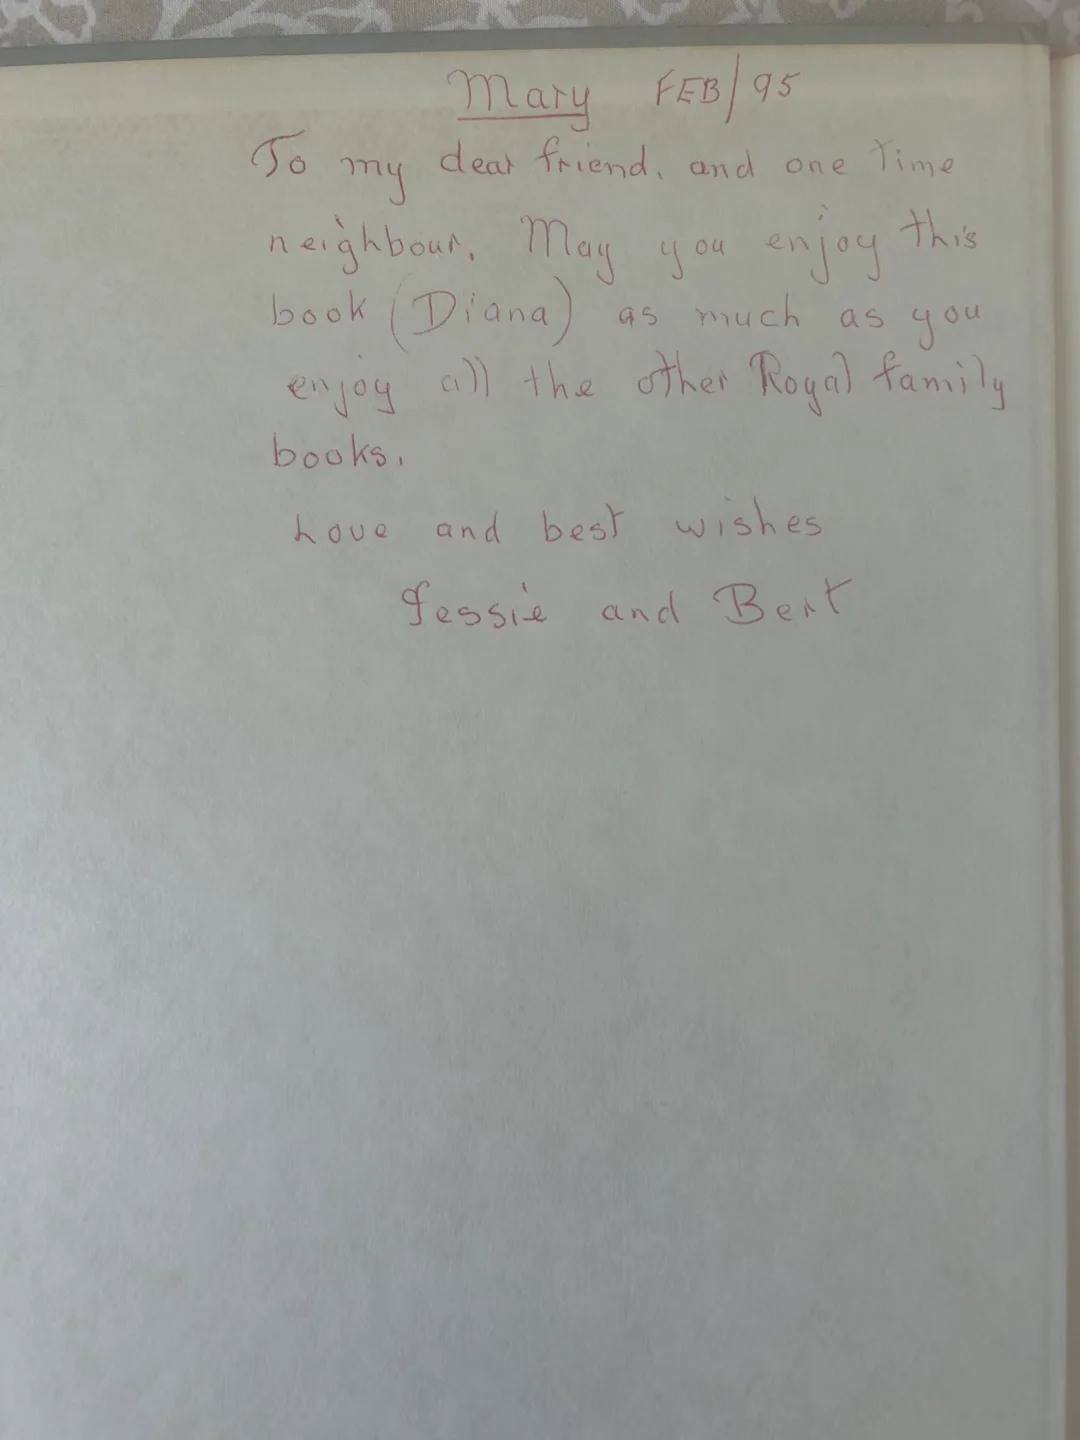 Mary FEB/95
To my dear friend, and one Time
neighbour. May you enjoy this
book (Diana) as much as you
enjoy all the other Royal family
books.
Love and best wishes
Jessie and Bert